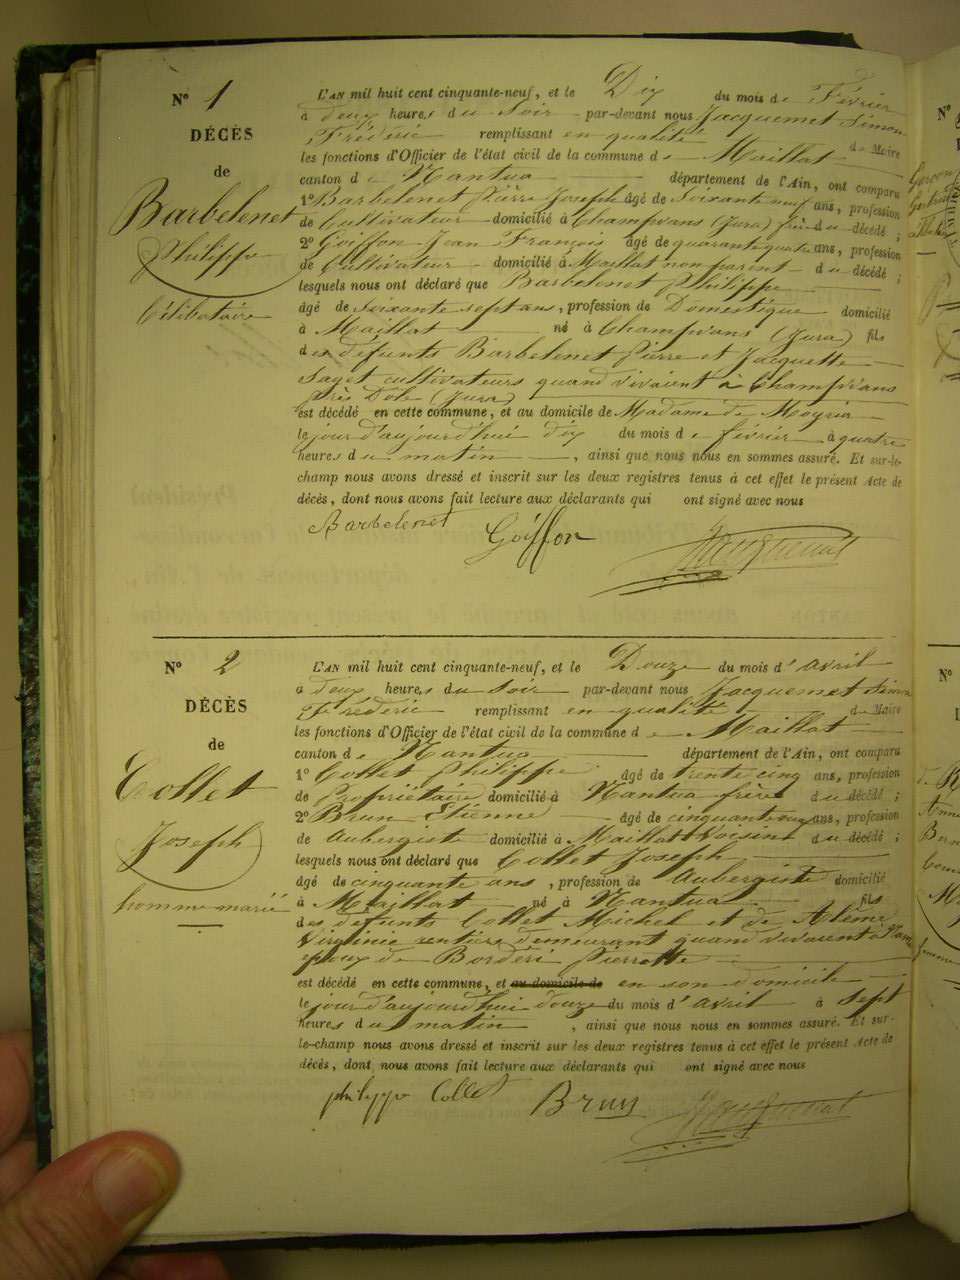 N° 1
DÉCÈS
de
Barbelenet
Philippe
Célibataire
L'AN mil huit cent cinquante-neuf, et le Dix du mois de Février
à deux heures du soir par-devant nous Jacquemet Simon
Frédéric remplissant en qualité de Maire
les fonctions d'Officier de l'état civil de la commune de Maillat
canton de Nantua département de l'Ain, ont comparu
1° Barbelenet Pierre Joseph âgé de Soixante neuf ans, profession
de Cultivateur domicilié à Champvans (Jura) frère du décédé ;
2° Goiffon Jean François âgé de quarante quatre ans, profession
de Cultivateur domicilié à Maillat non parent du décédé ;
lesquels nous ont déclaré que Barbelenet Philippe
âgé de Soixante sept ans, profession de Domestique domicilié
à Maillat né à Champvans (Jura) fils
des défunts Barbelenet Pierre et Jacquette
Saget cultivateurs quand vivaient à Champvans
près Dole (Jura)
est décédé en cette commune, et au domicile de Madame de Moyria
le jour d'aujourd'hui dix du mois de février à quatre
heures du matin , ainsi que nous nous en sommes assuré. Et sur-le-
champ nous avons dressé et inscrit sur les deux registres tenus à cet effet le présent Acte de
décès, dont nous avons fait lecture aux déclarants qui ont signé avec nous
Barbelenet Goiffon Jacquemet
N° 2
DÉCÈS
de
Collet
Joseph
homme marié
L'AN mil huit cent cinquante-neuf, et le Douze du mois d'avril
à deux heures du soir par-devant nous Jacquemet Simon
Frédéric remplissant en qualité de Maire
les fonctions d'Officier de l'état civil de la commune de Maillat
canton de Nantua département de l'Ain, ont comparu
1° Collet Philippe âgé de trente cinq ans, profession
de Propriétaire domicilié à Nantua frère du décédé ;
2° Brun Etienne âgé de cinquante ans, profession
de Aubergiste domicilié à Maillat voisin du décédé ;
lesquels nous ont déclaré que Collet Joseph
âgé de cinquante ans , profession de Aubergiste domicilié
à Maillat né à Nantua fils
des défunts Collet Michel et de Alème
Virginie rentière demeurant quand vivaient à Nan
époux de Borderi Pierrette
est décédé en cette commune, et au domicile de en son domicile
le jour d'aujourd'hui douze du mois d'avril à sept
heures du matin , ainsi que nous nous en sommes assuré. Et sur-
le-champ nous avons dressé et inscrit sur les deux registres tenus à cet effet le présent Acte de
décès, dont nous avons fait lecture aux déclarants qui ont signé avec nous
philippe Collet Brun Jacquemet